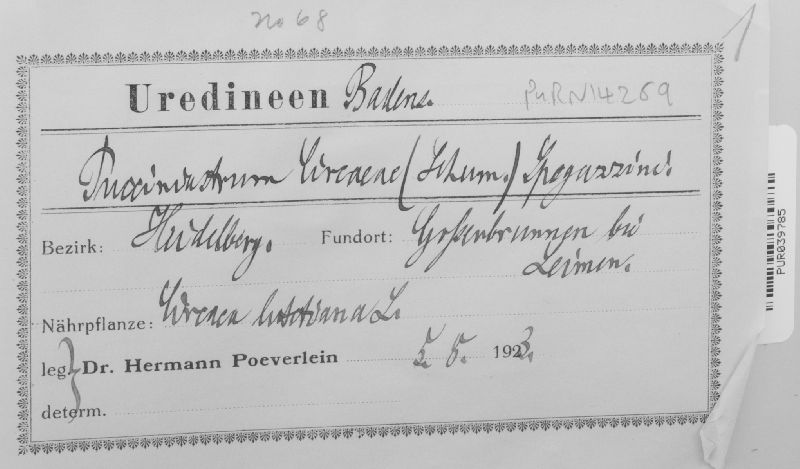 No 68
1
Uredineen Badens.
PURN14269
Pucciniastrum Circaeae (Schum.) Spegazzini.
Bezirk: Heidelberg. Fundort: Großerbrunnen bei
Leimen.
Nährpflanze: Circaea lutetiana L.
leg. Dr. Hermann Poeverlein 5. 8. 1923.
determ.
PUR039785